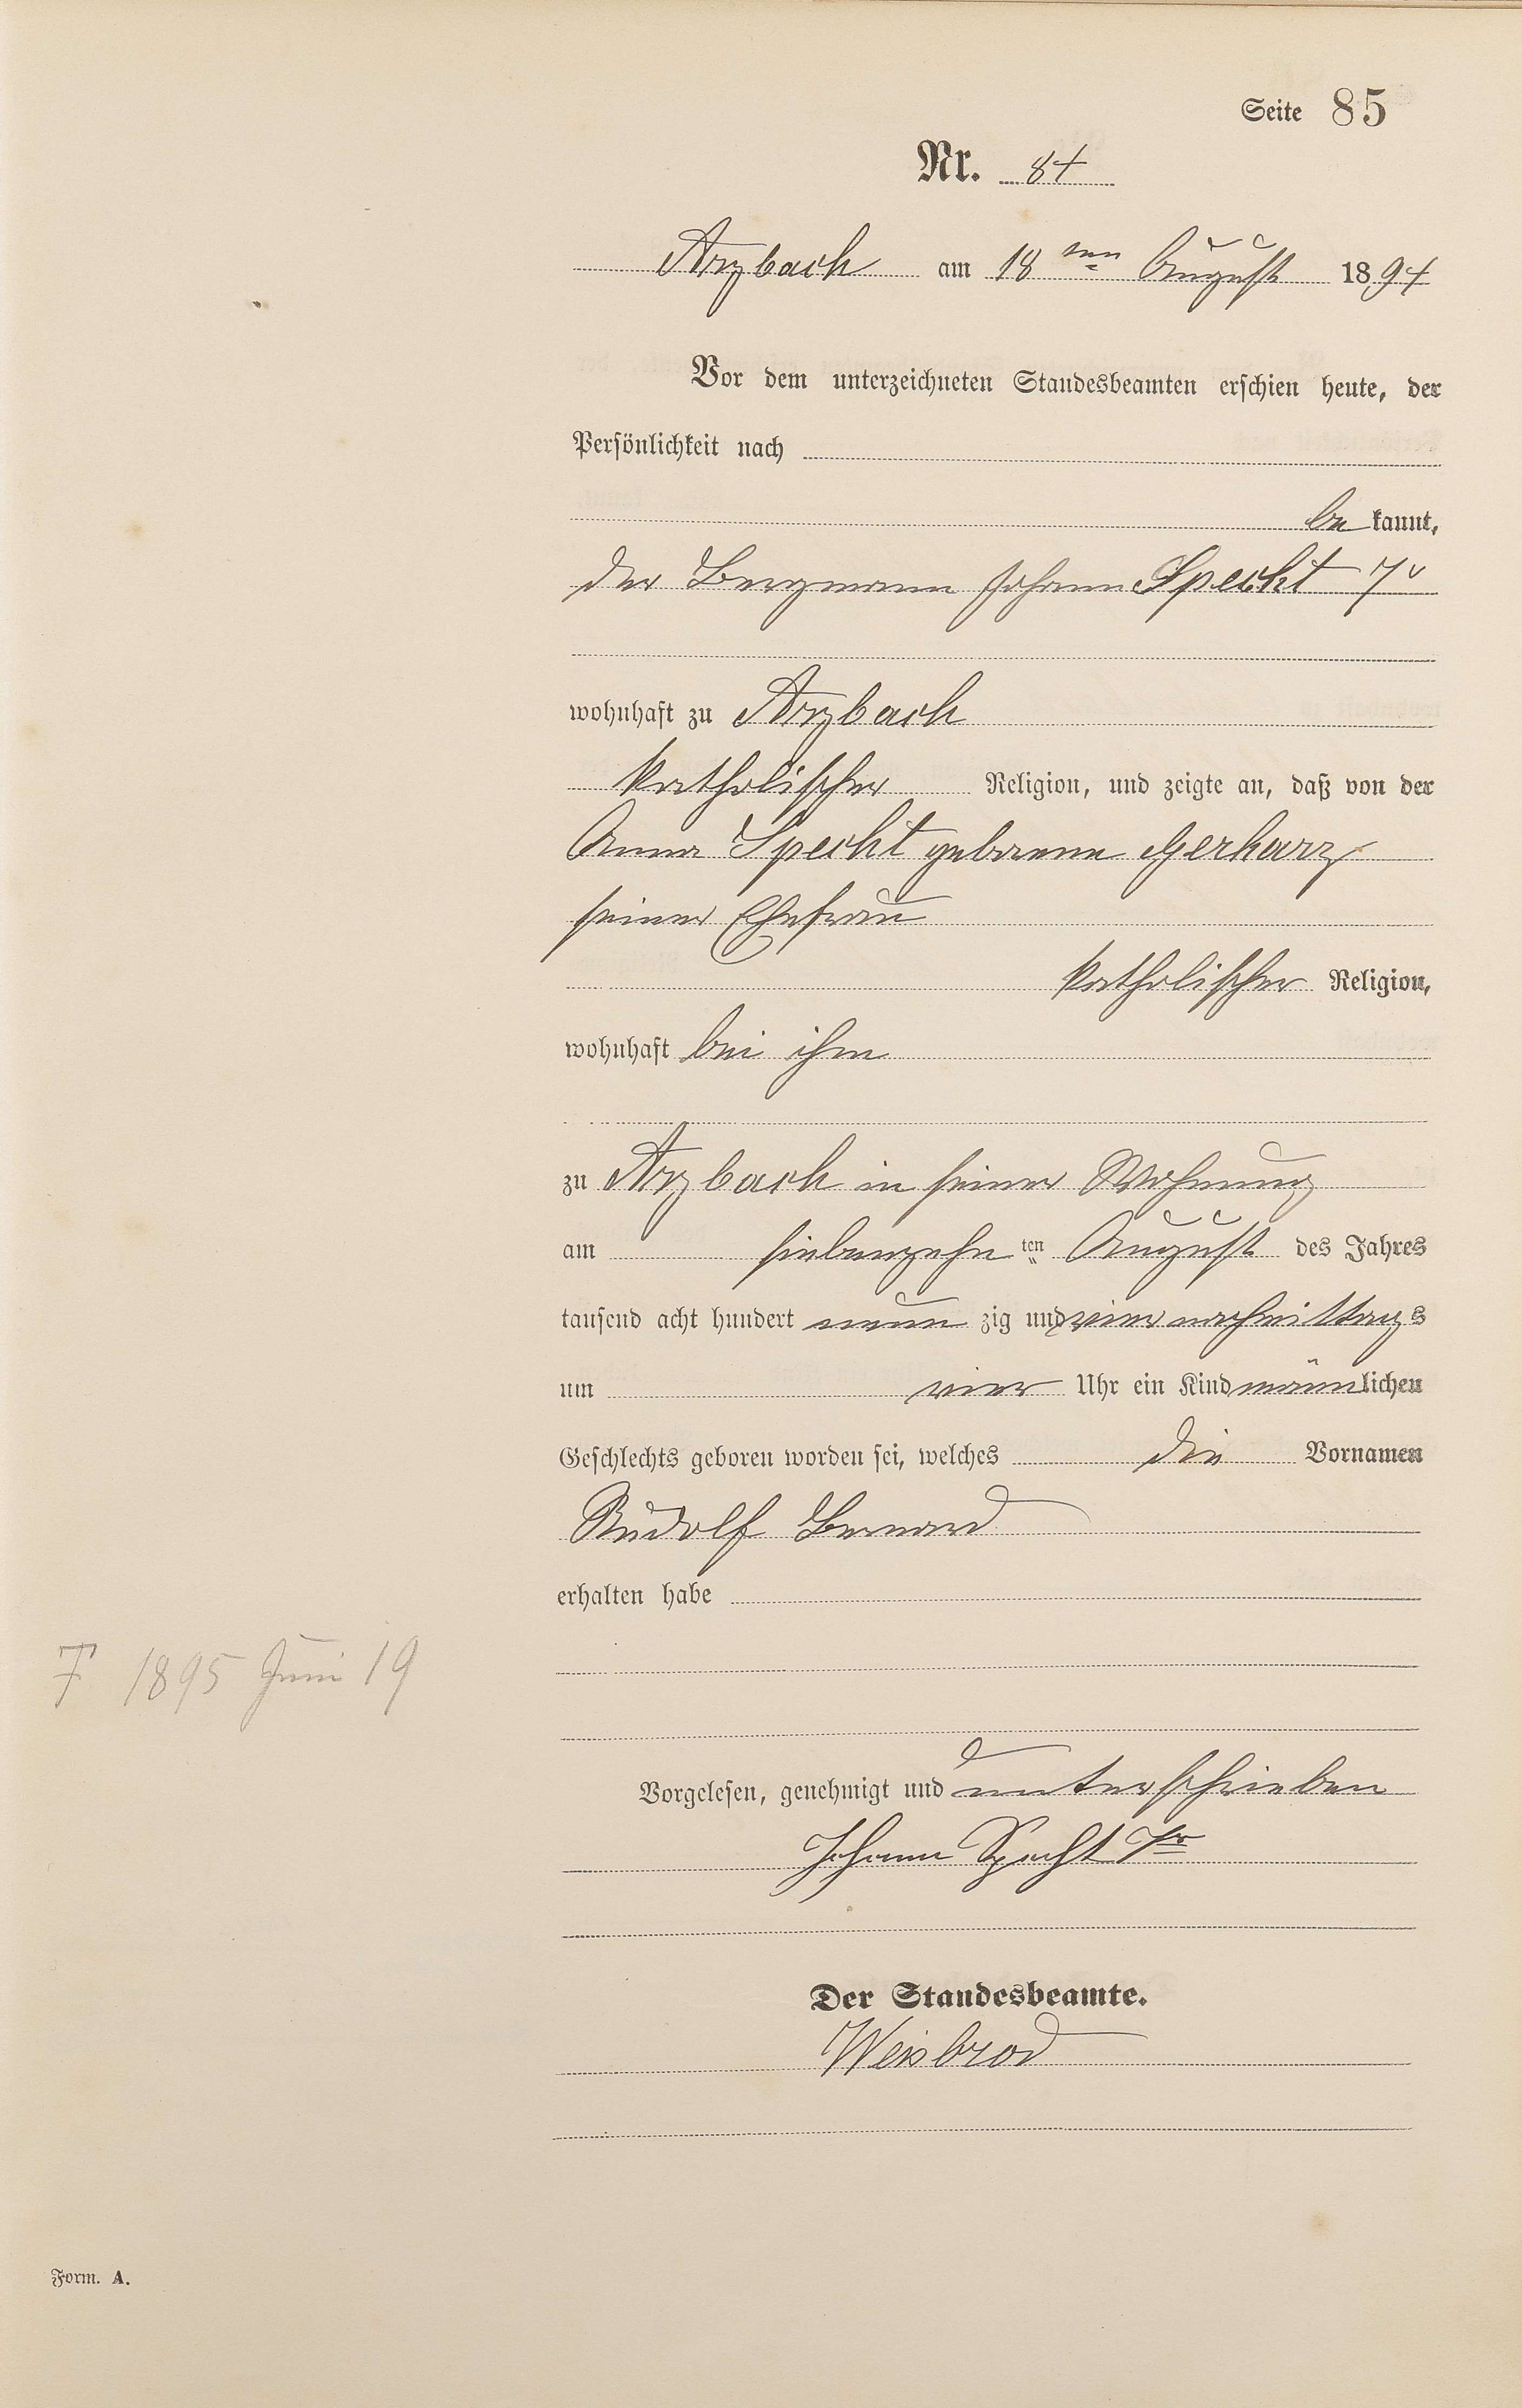 Seite 85
Nr. 84
Arzbach am 18 ten August 1894
Vor dem unterzeichneten Standesbeamten erschien heute, der
Persönlichkeit nach
be kannt,
der Bergmann Johann Specht 7r
wohnhaft zu Arzbach
katholischer Religion, und zeigte an, daß von der
Anna Specht geborene Gerharz
seiner Ehefrau
katholischer Religion,
wohnhaft bei ihm
zu Arzbach in seiner Wohnung
am siebenzehn ten August des Jahres
tausend acht hundert neun zig und vier nachmittags
um vier Uhr ein Kind männlichen
Geschlechts geboren worden sei, welches die Vornamen
Rudolf Bernard
erhalten habe
† 1895 Juni 19
Vorgelesen, genehmigt und unterschrieben
Johann Specht 7r
Der Standesbeamte.
Weisbrod
Form. A.